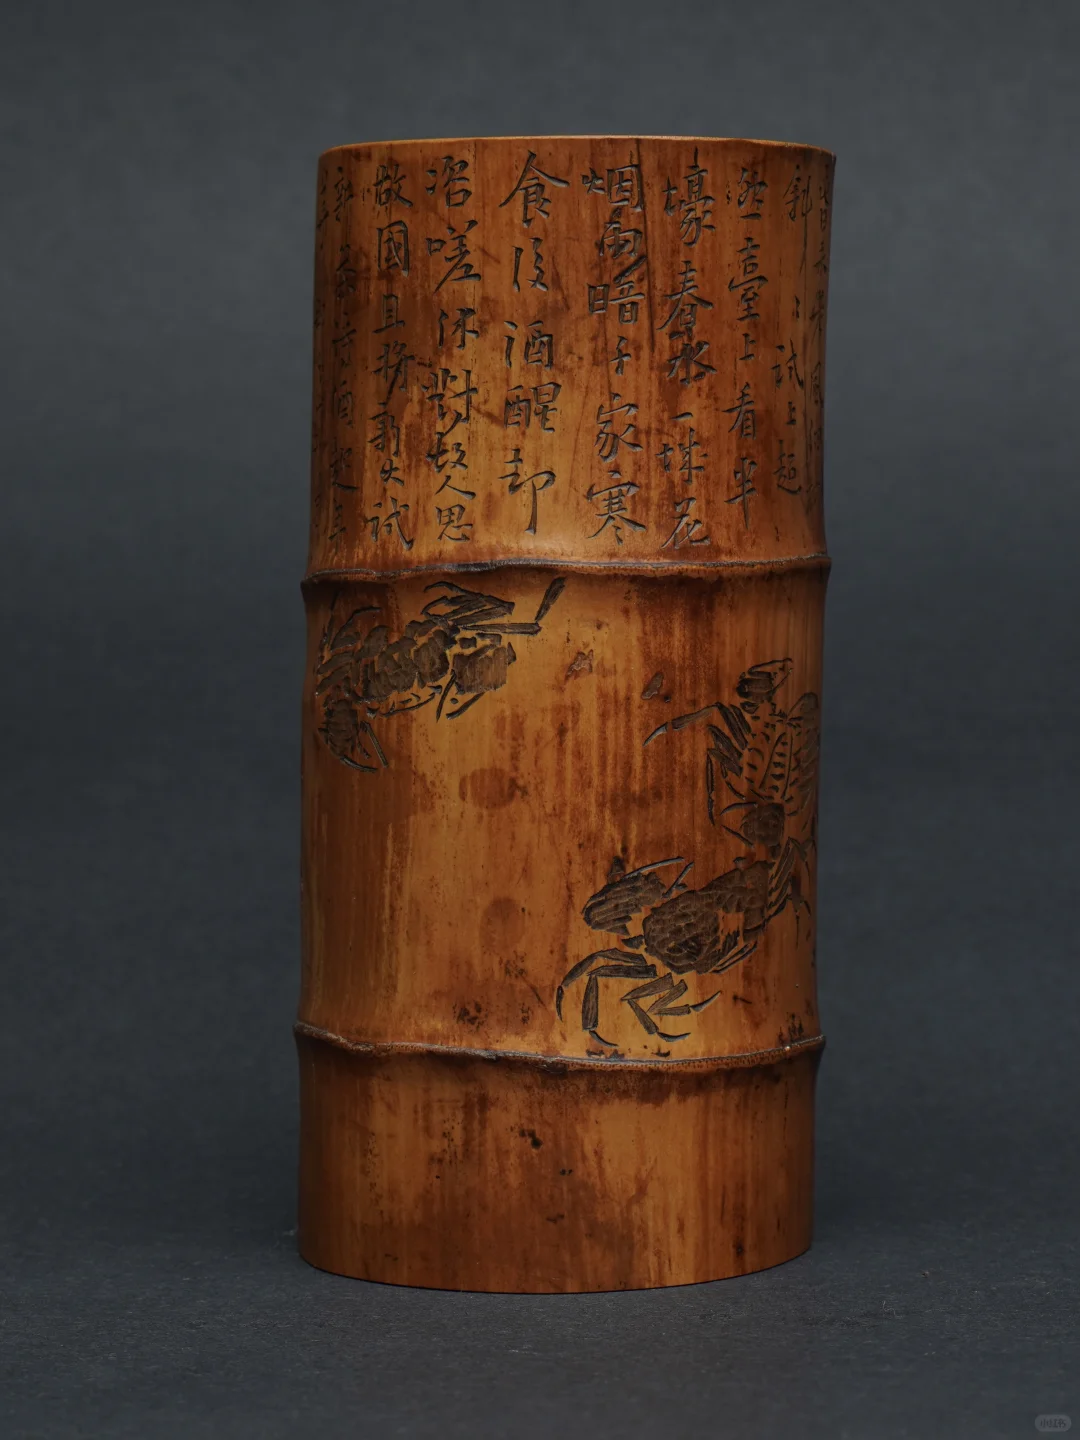 斜々試上超
然臺上看半
壕春水一城花
烟雨暗千家寒
食後酒醒却
咨嗟休對故人思
故國且將新火試
新茶詩酒趁年
小红书